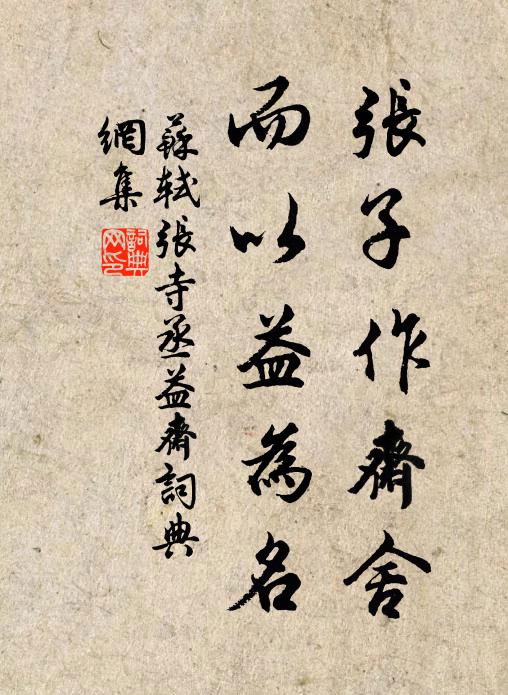 張子作齋舍
而以益為名
蘇軾張寺丞益齋詞典
網集
詞典
网印